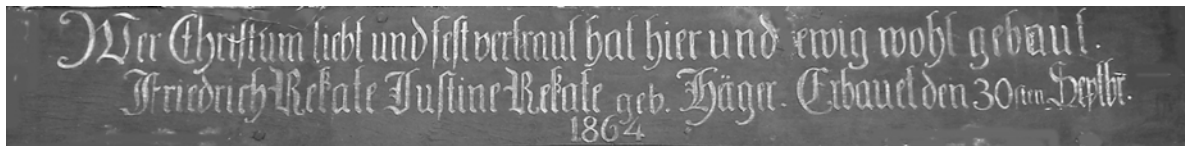 Wer Christum liebt und fest vertraut hat hier und ewig wohl gebaut.
Friedrich Rekate Justine Rekate geb. Häger. Erbauet den 30sten Septbr.
1864